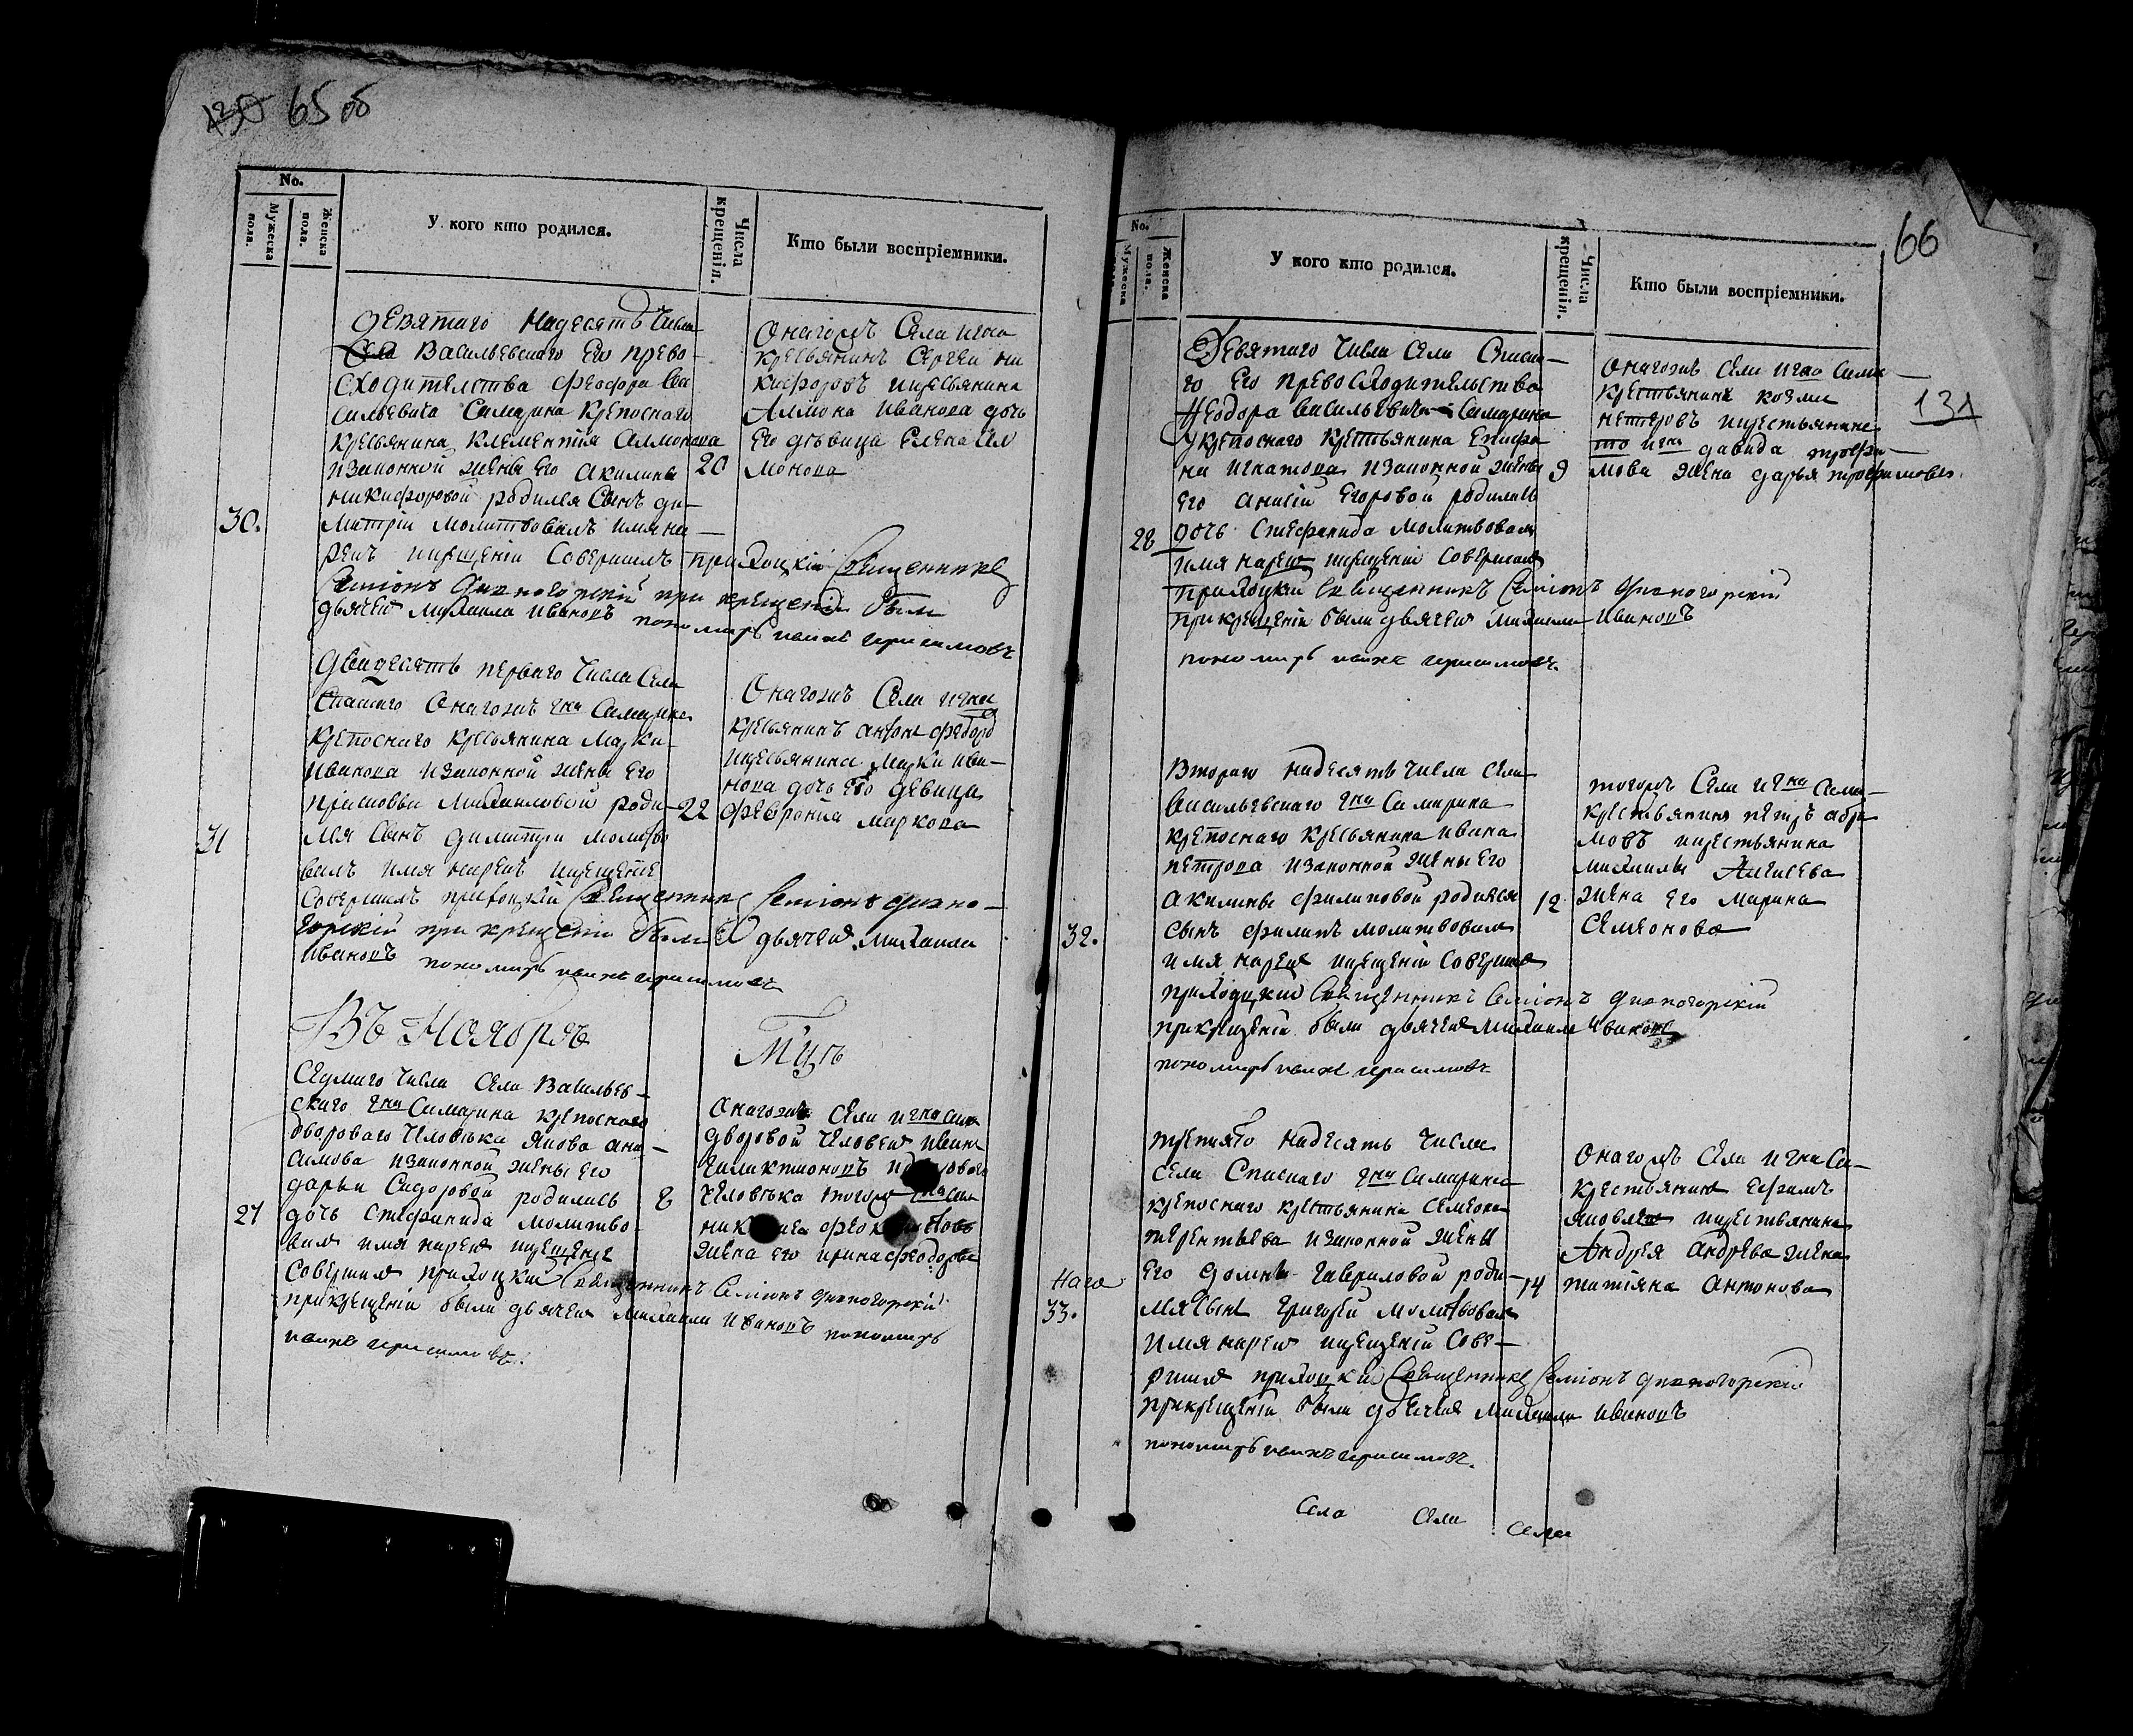 130 65 об
No.
Мужеска пола.
Женска пола.
У кого кто родился.
Числа крещенія.
Кто были воспріемники.
Девятаго надесять числа
Села Васильевскаго Его прево-
сходителства Феодора Ва
сильевича Самарина крепоснаго
крестьянина Клементія
изаконной жены его Акилины
Никифоровой родился сынъ ди-
30.
митрій молитвовалъ имя на-
рекъ икрещеніи совершилъ приходкій священникъ
Семіонъ при крещеніи были
дьячекъ Михаила Ивановъ пономарь иванъ герасимовъ
20
Онагожъ села игна
крестьянинъ Сергей ни
кифоровъ икресьянина
Иванова дочь
его девица Елена
Двадесять перваго числа села
Спаскаго Онагожъ гна Самарина
крепоснаго кресьянина Марка
Иванова изаконной жены его
Михаиловой роди-
31
лся сынъ Димитри молитво
валъ имя нарекъ икрещеніе
совершилъ приходкій священникъ Семіонъ
при крещеніи были дьячекъ Михаила
Ивановъ пономарь иванъ герасимовъ
22
Онагожъ села игна
кресьянинъ антонъ федоро
икресьянина Марка Ива-
нова дочь его девица
феврониа маркова
Въ Ноябре
Седмаго числа села Васильев-
скаго гна Самарина крепоснаго
двороваго человека Якова
изаконной жены его
дарьи Сидоровой родилась
27
дочь Стефанида молитво-
валъ имя нарекъ икрещенее
совершилъ приходкій священникъ Семіонъ
прикрещеніи были дьячекъ Михаила Ивановъ пономарь
иванъ герасимовъ.
8
Онагожъ села игна сама
дворовой человекъ Иванъ
человека тогожъ гна сам
жена его ирина феодорова
66
131
No.
Мужеска
Женска пола.
У кого кто родился.
Числа крещенія.
Кто были воспріемники.
Девятаго числа села Спаска-
го Его превосходительства
Феодора Васильевича Самарина
крепоснаго крестьянина Епифа
на Игнатова изаконной жены
его Егоровой родилась
28
дочь Стефанида молитвовалъ
имя нарекъ икрещеніи совершилъ
приходкій священникъ Семіонъ
прикрещеніи были дьячекъ Михаила Ивановъ
пономарь иванъ герасимовъ.
9
Онагожъ села игна Сама-
крестьянинъ козма
икрестьянина
то игна давида трофи-
мова жена дарья трофимова.
Втораго надесять числа села
Васильевскаго гна Самарина
крепоснаго кресьянина Ивана
Петрова изаконной жены его
Акилины Филиповой родился
32.
сынъ Филипъ молитвовалъ
имя нарекъ икрещеніи соверши
приходцкій священникъ Семіонъ
прикрещеніи были дьячекъ Михаила Ивановъ
пономарь иванъ герасимовъ
12
тогожъ села игна Сама-
крестьянинъ петръ абра
мовъ икрестьянина
михаилы Алексева
жена его марина
Семионова
третяго надесять числа
села Спаскаго гна Самарина
крепоснаго крестьянина Семиона
терентьева изаконной жены
его Домны Гавриловой роди-
Наго
33.
лся сынъ Григорей молитвовалъ
имя нарекъ икрещеніи сове-
ршилъ приходкій священникъ Семіонъ
прикрещеніи были дьячекъ Михаила Ивановъ
пономарь иванъ герасимовъ.
14
Онагожъ села игна Са-
крестьянинъ Ефимъ
яковлевъ икрестьянина
Андрея Андрева жена
татіяна антонова
Села Села Села